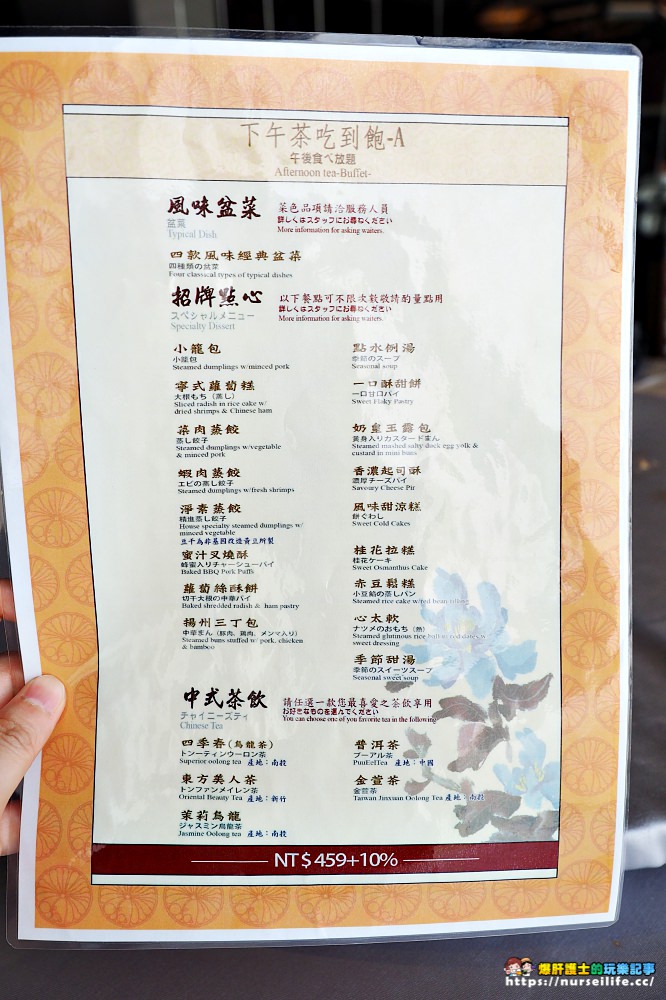 下午茶吃到飽-A
午後食べ放題
Afternoon tea-Buffet-
風味盆菜
盆菜
Typical Dish
菜色品項請洽服務人員
詳しくはスタッフにお尋ねください
More information for asking waiters.
四款風味經典盆菜
四種類の盆菜
Four classical types of typical dishes
招牌點心
スペシャルメニュー
Specialty Dissert
以下餐點可不限次數敬請酌量點用
詳しくはスタッフにお尋ねください
More information for asking waiters.
小籠包
小籠包
Steamed dumplings w/minced pork
寧式蘿蔔糕
大根もち（蒸し）
Sliced radish in rice cake w/
dried shrimps & Chinese ham
菜肉蒸餃
蒸し餃子
Steamed dumplings w/vegetable
& minced pork
蝦肉蒸餃
エビの蒸し餃子
Steamed dumplings w/fresh shrimps
淨素蒸餃
精進蒸し餃子
House specialty steamed dumplings w/
minced vegetable
豆干為非基因改造黃豆所製
蜜汁叉燒酥
蜂蜜入りチャーシューパイ
Baked BBQ Pork Puffs
蘿蔔絲酥餅
切干大根の中華パイ
Baked shredded radish & ham pastry
揚州三丁包
中華まん（豚肉、鶏肉、メンマ入り）
Steamed buns stuffed w/ pork, chicken
& bamboo
點水例湯
季節のスープ
Seasonal soup
一口酥甜餅
一口甘口パイ
Sweet Flaky Pastry
奶皇玉露包
黃身入りカスタードまん
Steamed mashed salty duck egg yolk &
custard in mini buns
香濃起司酥
濃厚チーズパイ
Savoury Cheese Pir
風味甜涼糕
餅ぐわし
Sweet Cold Cakes
桂花拉糕
桂花ケーキ
Sweet Osmanthus Cake
赤豆鬆糕
小豆餡の蒸しパン
Steamed rice cake w/red bean filling
心太軟
ナツメのおもち（熱）
Steamed glutinous rice ball in red dates w/
sweet dressing
季節甜湯
季節のスイーツスープ
Seasonal sweet soup
中式茶飲
チャイニーズティ
Chinese Tea
請任選一款您最喜愛之茶飲享用
お好きなものを選んでください
You can choose one of you favorite tea in the following
四季春(烏龍茶)
トンーティンウーロン茶
Superior oolong tea 產地：南投
東方美人茶
トンファンメイレン茶
Oriental Beauty Tea 產地：新竹
茉莉烏龍
ジャスミン烏龍茶
Jasmine Oolong tea 產地：南投
普洱茶
プーアル茶
PuuErlTea 產地：中國
金萱茶
金萱茶
Taiwan Jinxuan Oolong Tea 產地：南投
NT$459+10%
爆肝護士的玩樂記事
https://nurseilife.cc/